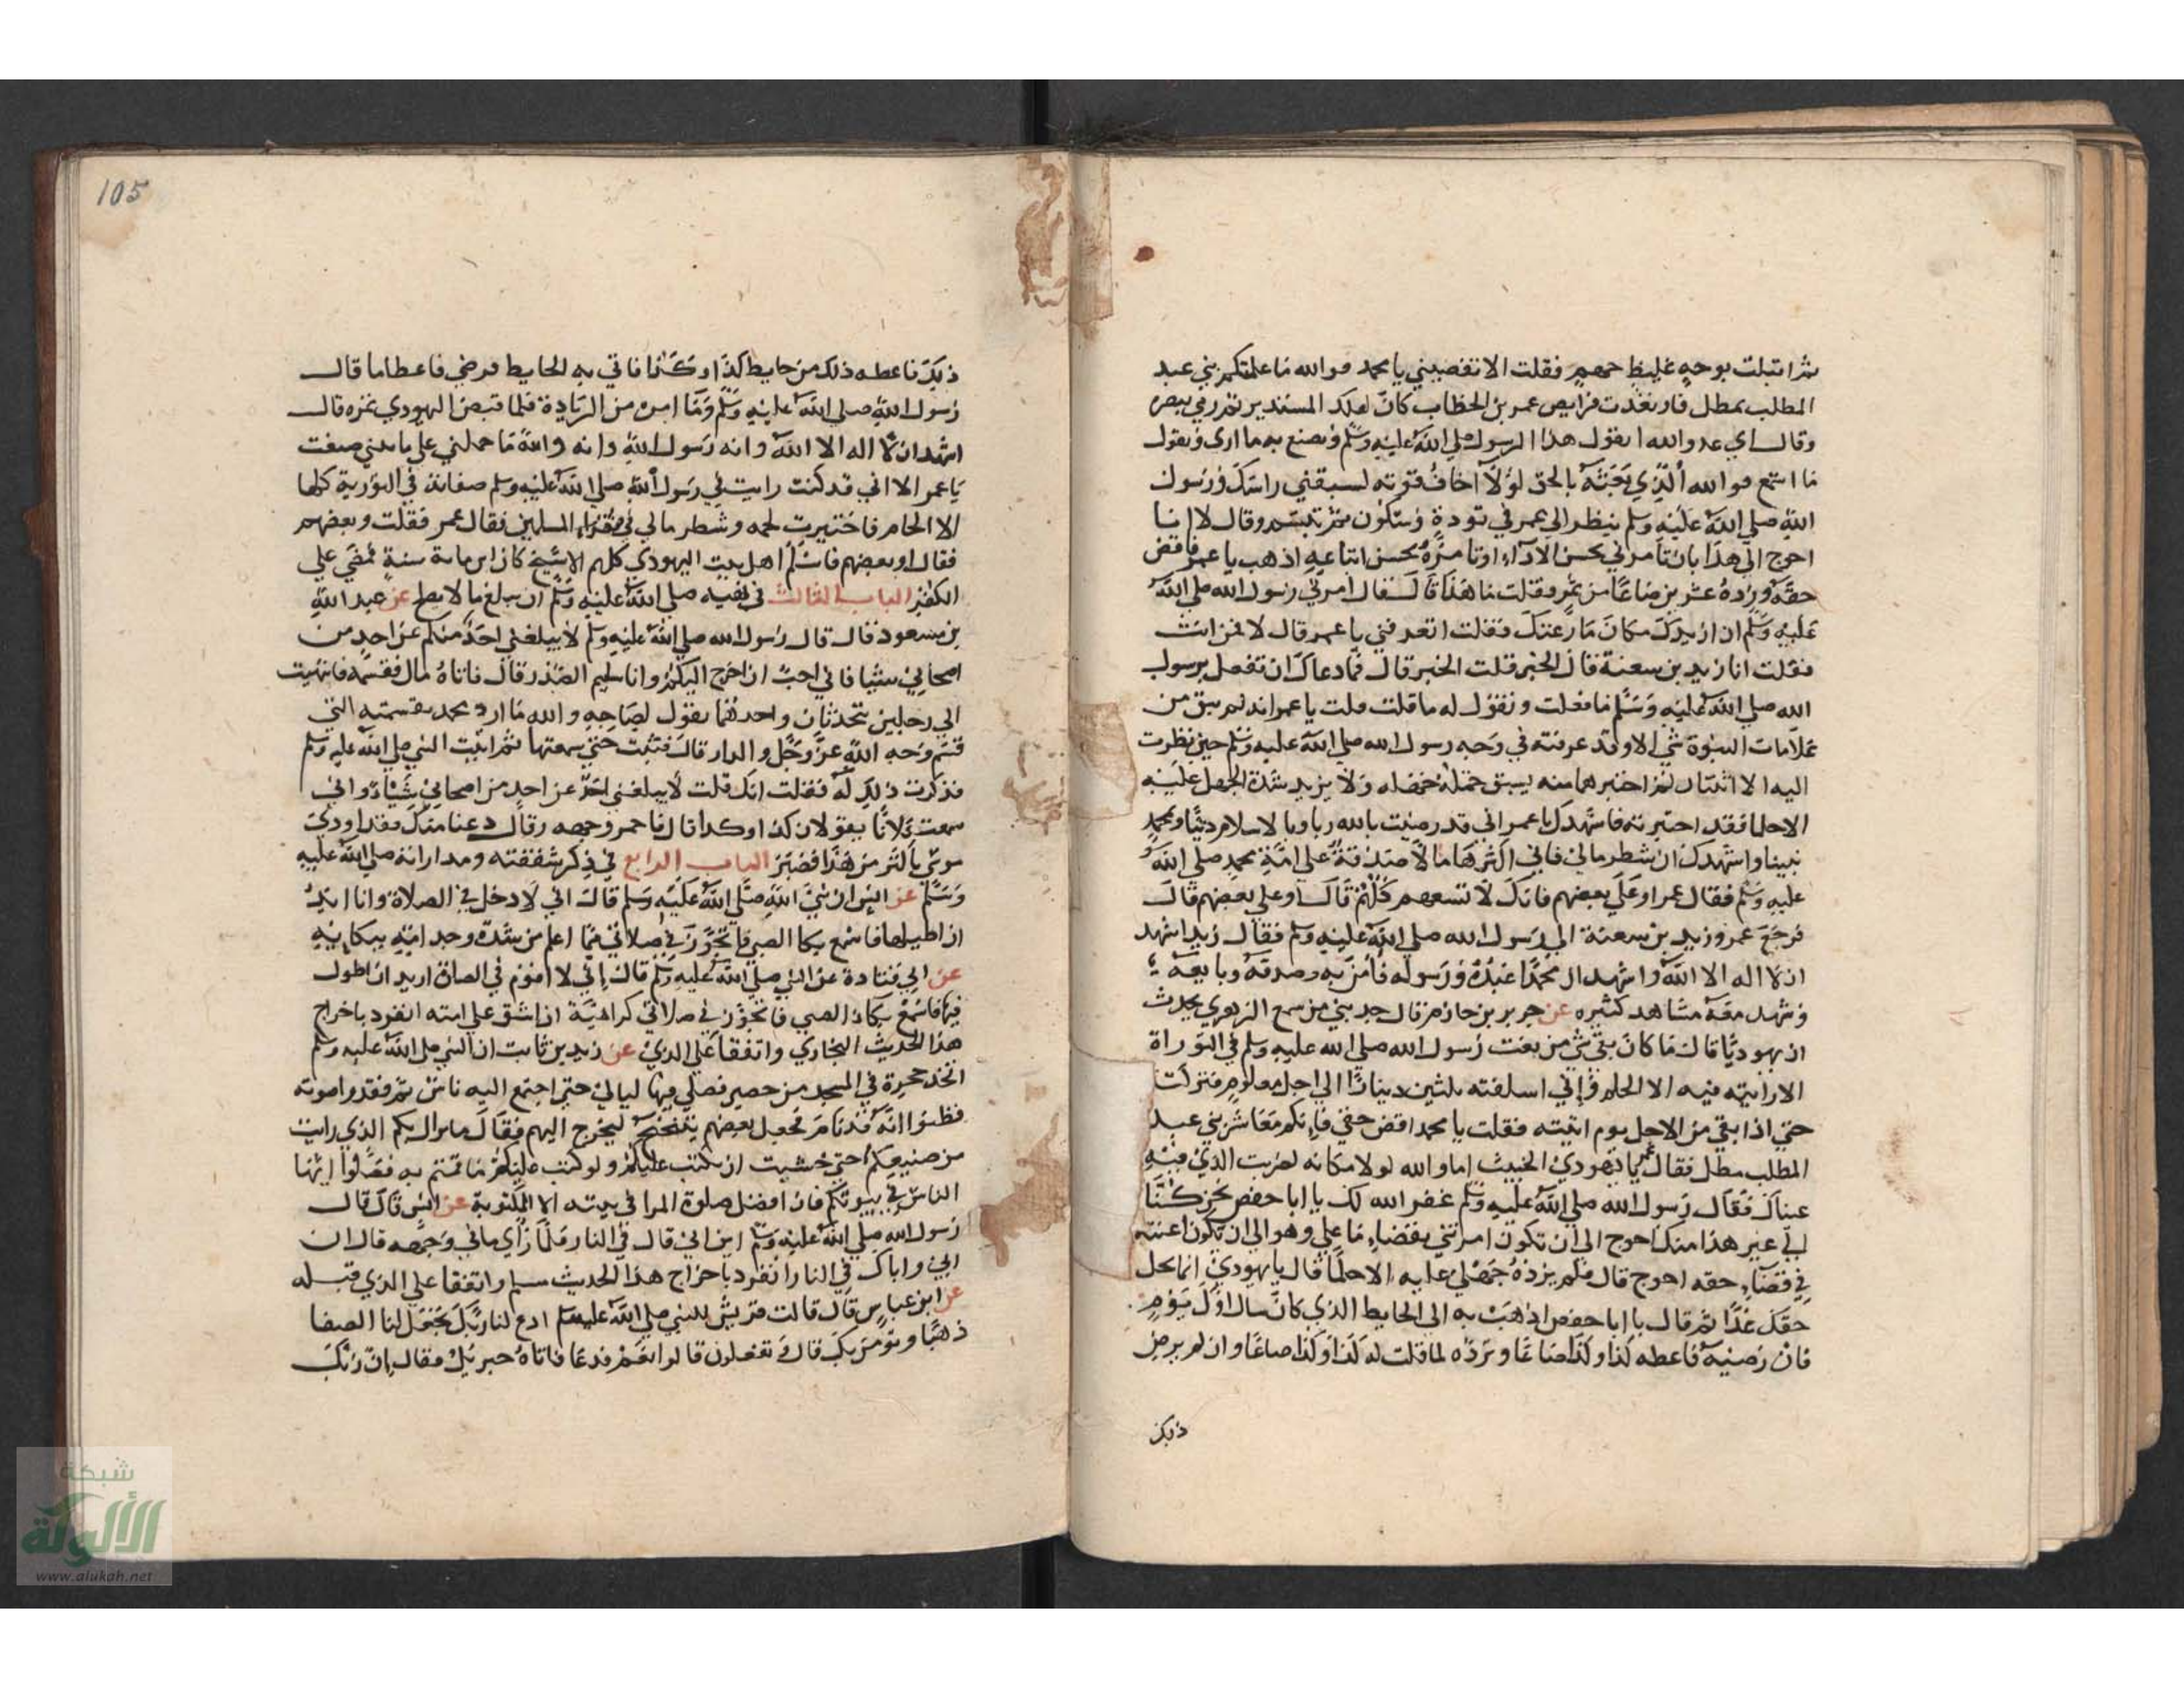 ثم اقبلت بوجه غليظ جهم فقلت الا تقضيني يا محمد فوالله ما علمتكم بني عبد
المطلب بمطل فارتعدت فرايص عمر بن الخطاب كان لفلك المستدير ثم رمي ببصره
وقال اي عدو الله اتقول هذا الرسول صلي الله عليه وسلم وتصنع به ما اري وتقول
ما اسمع فوالله الذي بعثه بالحق لولا اخاف قوته لسبقني راسك ورسول
الله صلي الله عليه وسلم ينظر الي عمر في تودة وسكون ثم تبسم وقال لا انا
احوج الي هذا بان تامرني بحسن الادآء او تامره بحسن اتباعه اذهب يا عمر فاقض
حقه وزده عشرين صاعًا من تمر فقلت ما هذا قال امرني رسول الله صلي الله
عليه وسلم ان ازيدك مكان ما رعتك فقلت اتعرفني يا عمر قال لا فمن انت
فقلت انا زيد بن سعنة قال الحبر قلت الحبر قال فما دعاك ان تفعل برسول
الله صلي الله عليه وسلم ما فعلت وتقول له ما قلت قلت يا عمر انه لم يبق من
علامات النبوة شي الا وقد عرفته في وجه رسول الله صلي الله عليه وسلم حين نظرت
اليه الا اثنتان لم اختبرهما منه يسبق حمله ولا يزيد شدة الجهل عليه
الا حلما فقد اختبرته فاشهدك يا عمر اني قد رضيت بالله ربا وبالاسلام دينًا وبمحمد
نبيا واشهدك ان شطر مالي فاني اكثرها مالا صدقة علي امة محمد صلي الله
عليه وسلم فقال عمر او علي بعضهم فانك لا تسعهم كلهم قال او علي بعضهم قال
فرجع عمر وزيد بن سعنة الي رسول الله صلي الله عليه وسلم فقال زيد اشهد
ان لا اله الا الله واشهد ان محمدًا عبده ورسوله فامن به وصدقه وبايعه
وشهد معه مشاهد كثيره عن جرير بن حازم قال حدثني من سمع الزهري يحدث
ان يهوديًا قال ما كان بقي شي من نعت رسول الله صلي الله عليه وسلم في التوراة
الا رايته فيه الا الحلم واني اسلفته ثلثين دينارًا الي اجل معلوم فتركت
حتي اذا بقي من الاجل يوم اتيته فقلت يا محمد اقض حقي فانكم معاشر بني عبد
المطلب مطل فقال عمر يا يهودي الخبيث اما والله لولا مكانه لضربت الذي فيه
عيناك فقال رسول الله صلي الله عليه وسلم غفر الله لك يا ابا حفص نحن كنا
الي غير هذا منك احوج الي ان تكون امرتني بقضاء ما علي وهو الي ان تكون اعنته
في قضآء حقه احوج قال فلم يزده جهلي عليه الا حلما قال يا يهودي انما يحل
حقك غدًا ثم قال يا ابا حفص اذهب به الي الحايط الذي كان سال اول يوم
فان رضيه فاعطه كذا وكذا صاعًا وترده لما قلت له كذا وكذا صاعًا وان لم يرض
ذلك
105
ذلك فاعطه ذلك من حايط كذا وكذا فاتي به الحايط فرضي فاعطاه ما قال
رسول الله صلي الله عليه وسلم وما امره من الزيادة فلما قبض اليهودي تمره قال
اشهد ان لا اله الا الله وانه رسول الله وانه والله ما حملني علي ما صنعت
يا عمر الا اني قد كنت رايت في رسول الله صلي الله عليه وسلم صفاته في التورية كلها
الا الحلم فاختبرت حلمه وشطر مالي في فقراء المسلمين فقال عمر فقلت وبعضهم
فقال او بعضهم فاسلم اهل بيت اليهودي كلهم الا شيخ كان ابن ماية سنة فمضي علي
الكفر الباب الثالث في نهيه صلي الله عليه وسلم ان يبلغ ما لا يصلح عن عبد الله
بن مسعود قال قال رسول الله صلي الله عليه وسلم لا يبلغني احد منكم عن احد من
اصحابي شيئا فاني احب ان اخرج اليكم وانا سليم الصدر قال فاتاه مال فقسمه فانتهيت
الي رجلين يتحدثان واحدهما يقول لصاحبه والله ما اراد محمد بقسمته التي
قسم وجه الله عز وجل والدار قال فثبت حتي سمعتها ثم اتيت النبي صلي الله عليه وسلم
فذكرت ذلك له فقلت انك قلت لا يبلغني احد عن احد من اصحابي شيئا واني
سمعت فلانًا يقولان كذا وكذا قال فاحمر وجهه وقال دعنا منك فقد اوذي
موسي باكثر من هذا فصبر الباب الرابع في ذكر شفقته ومداراته صلي الله عليه
وسلم عن انس ان نبي الله صلي الله عليه وسلم قال اني لادخل في الصلاة وانا اريد
ان اطيلها فاسمع بكا الصبي فاتجوز في صلاتي مما اعلم من شدة وجد امه ببكايه
عن ابي قتادة عن النبي صلي الله عليه وسلم قال اني لاقوم في الصلاة اريد ان اطول
فيها فاسمع بكاء الصبي فاتجوز في صلاتي كراهية ان اشق علي امه انفرد باخراج
هذا الحديث البخاري واتفقا علي الذي عن زيد بن ثابت ان النبي صلي الله عليه وسلم
اتخذ حجرة في المسجد من حصير فصلي فيها ليالي حتي اجتمع اليه ناس ثم فقدوا صوته
فظنوا انه قد نام فجعل بعضهم يتنحنح ليخرج اليهم فقال ما زال بكم الذي رايت
من صنيعكم حتي خشيت ان يكتب عليكم ولو كتب عليكم ما قمتم به فصلوا ايها
الناس في بيوتكم فان افضل صلوة المرا في بيته الا المكتوبة عن انس قال قال
رسول الله صلي الله عليه وسلم اين ابي قال في النار فلما راي ما في وجهه قال ان
ابي واباك في النار انفرد باخراج هذا الحديث مسلم واتفقا علي الذي قبله
عن ابن عباس قال قالت قريش للنبي صلي الله عليه وسلم ادع لنا ربك يجعل لنا الصفا
ذهبًا ونومن بك قال وتفعلون قالوا نعم فدعا فاتاه جبريل فقال ان ربك
شبكة
الألوكة
www.alukah.net